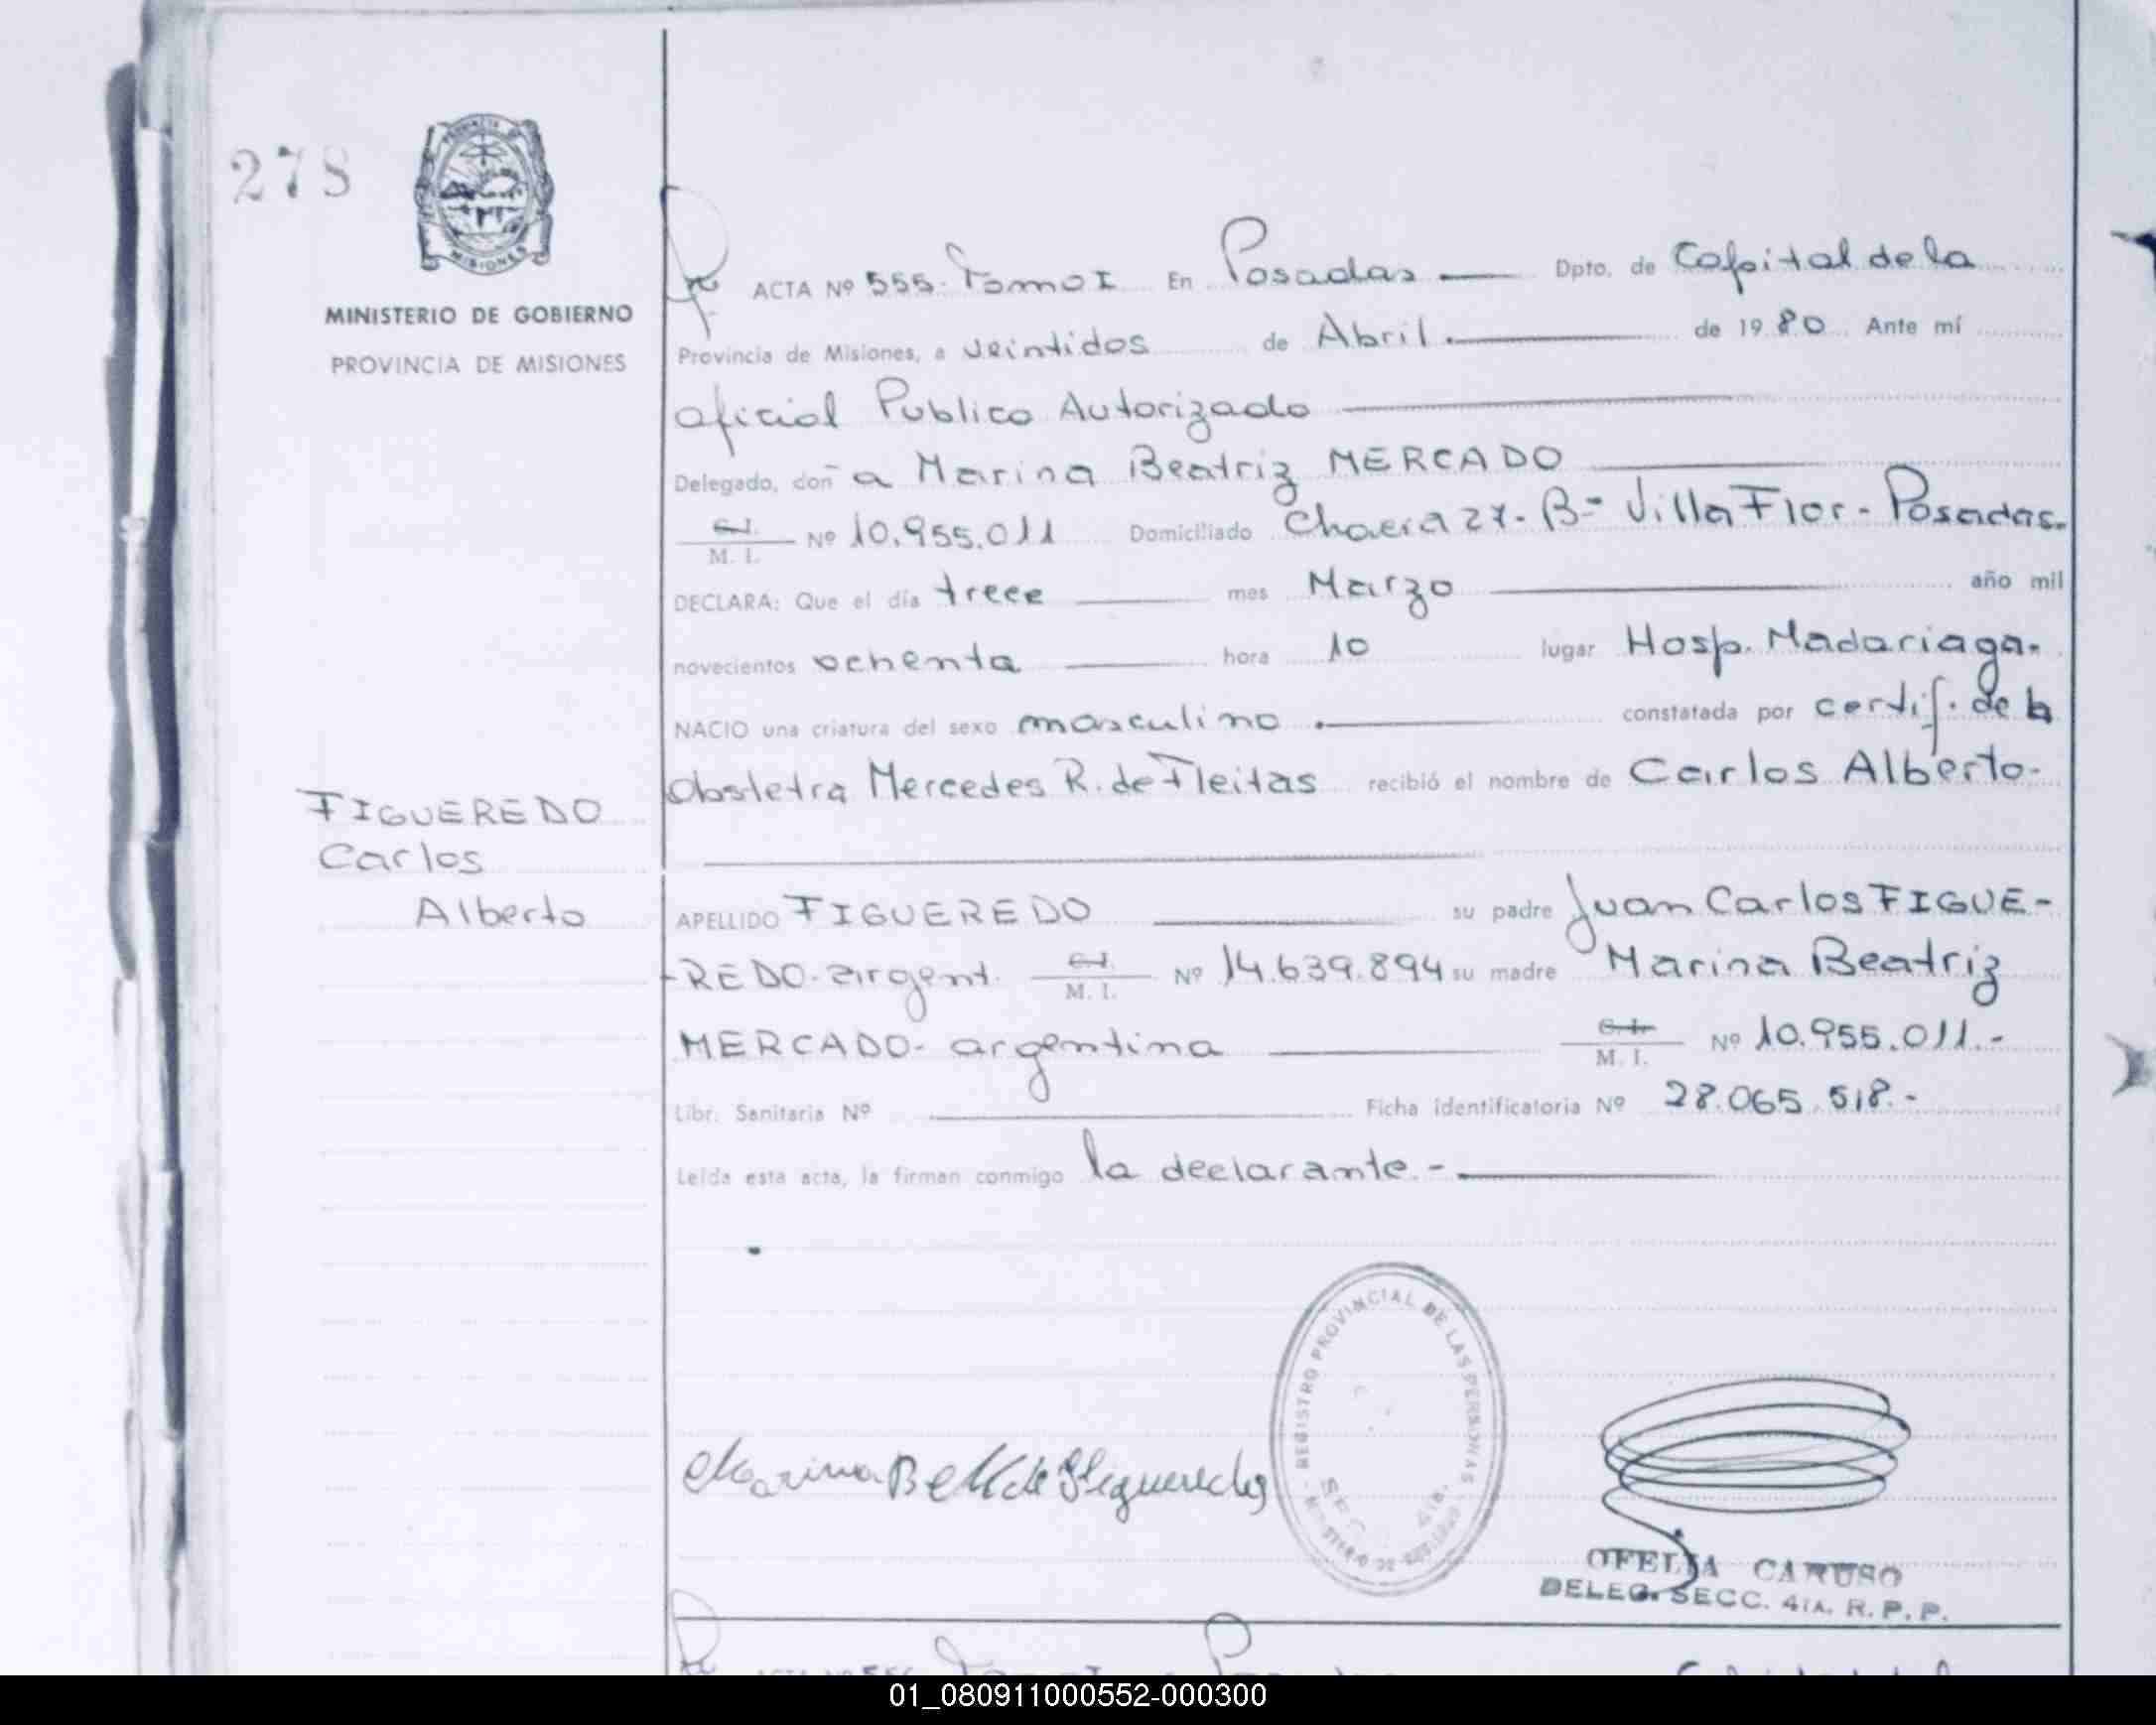 278
PROVINCIA DE
MISIONES
MINISTERIO DE GOBIERNO
PROVINCIA DE MISIONES
FIGUEREDO
Carlos
Alberto
ACTA Nº 555. Tomo I En Posadas Dpto. de Capital de la
Provincia de Misiones, a veintidos de Abril. de 1980. Ante mí
Oficial Publico Autorizado
Delegado, doña Marina Beatriz MERCADO
C.I. M. I. Nº 10.955.011 Domiciliado Chacra 27. Bº Villa Flor - Posadas.
DECLARA: Que el día trece mes Marzo año mil
novecientos ochenta hora 10 lugar Hosp. Madariaga.
NACIO una criatura del sexo masculino. constatada por certif. de la
Obstetra Mercedes R. de Fleitas recibió el nombre de Carlos Alberto-
APELLIDO FIGUEREDO su padre Juan Carlos FIGUE-
-REDO. argent. C.I. M. I. Nº 14.639.894 su madre Marina Beatriz
MERCADO- argentina C.I. M. I. Nº 10.955.011.-
Libr. Sanitaria Nº Ficha identificatoria Nº 28.065.518.-
Leída esta acta, la firman conmigo la declarante.-
REGISTRO PROVINCIAL DE LAS PERSONAS
SEC. 4ta.
MINISTERIO DE GOBIERNO
Marina B de Figueredo
OFELIA CARUSO
DELEG. SECC. 4TA. R. P. P.
01_080911000552-000300